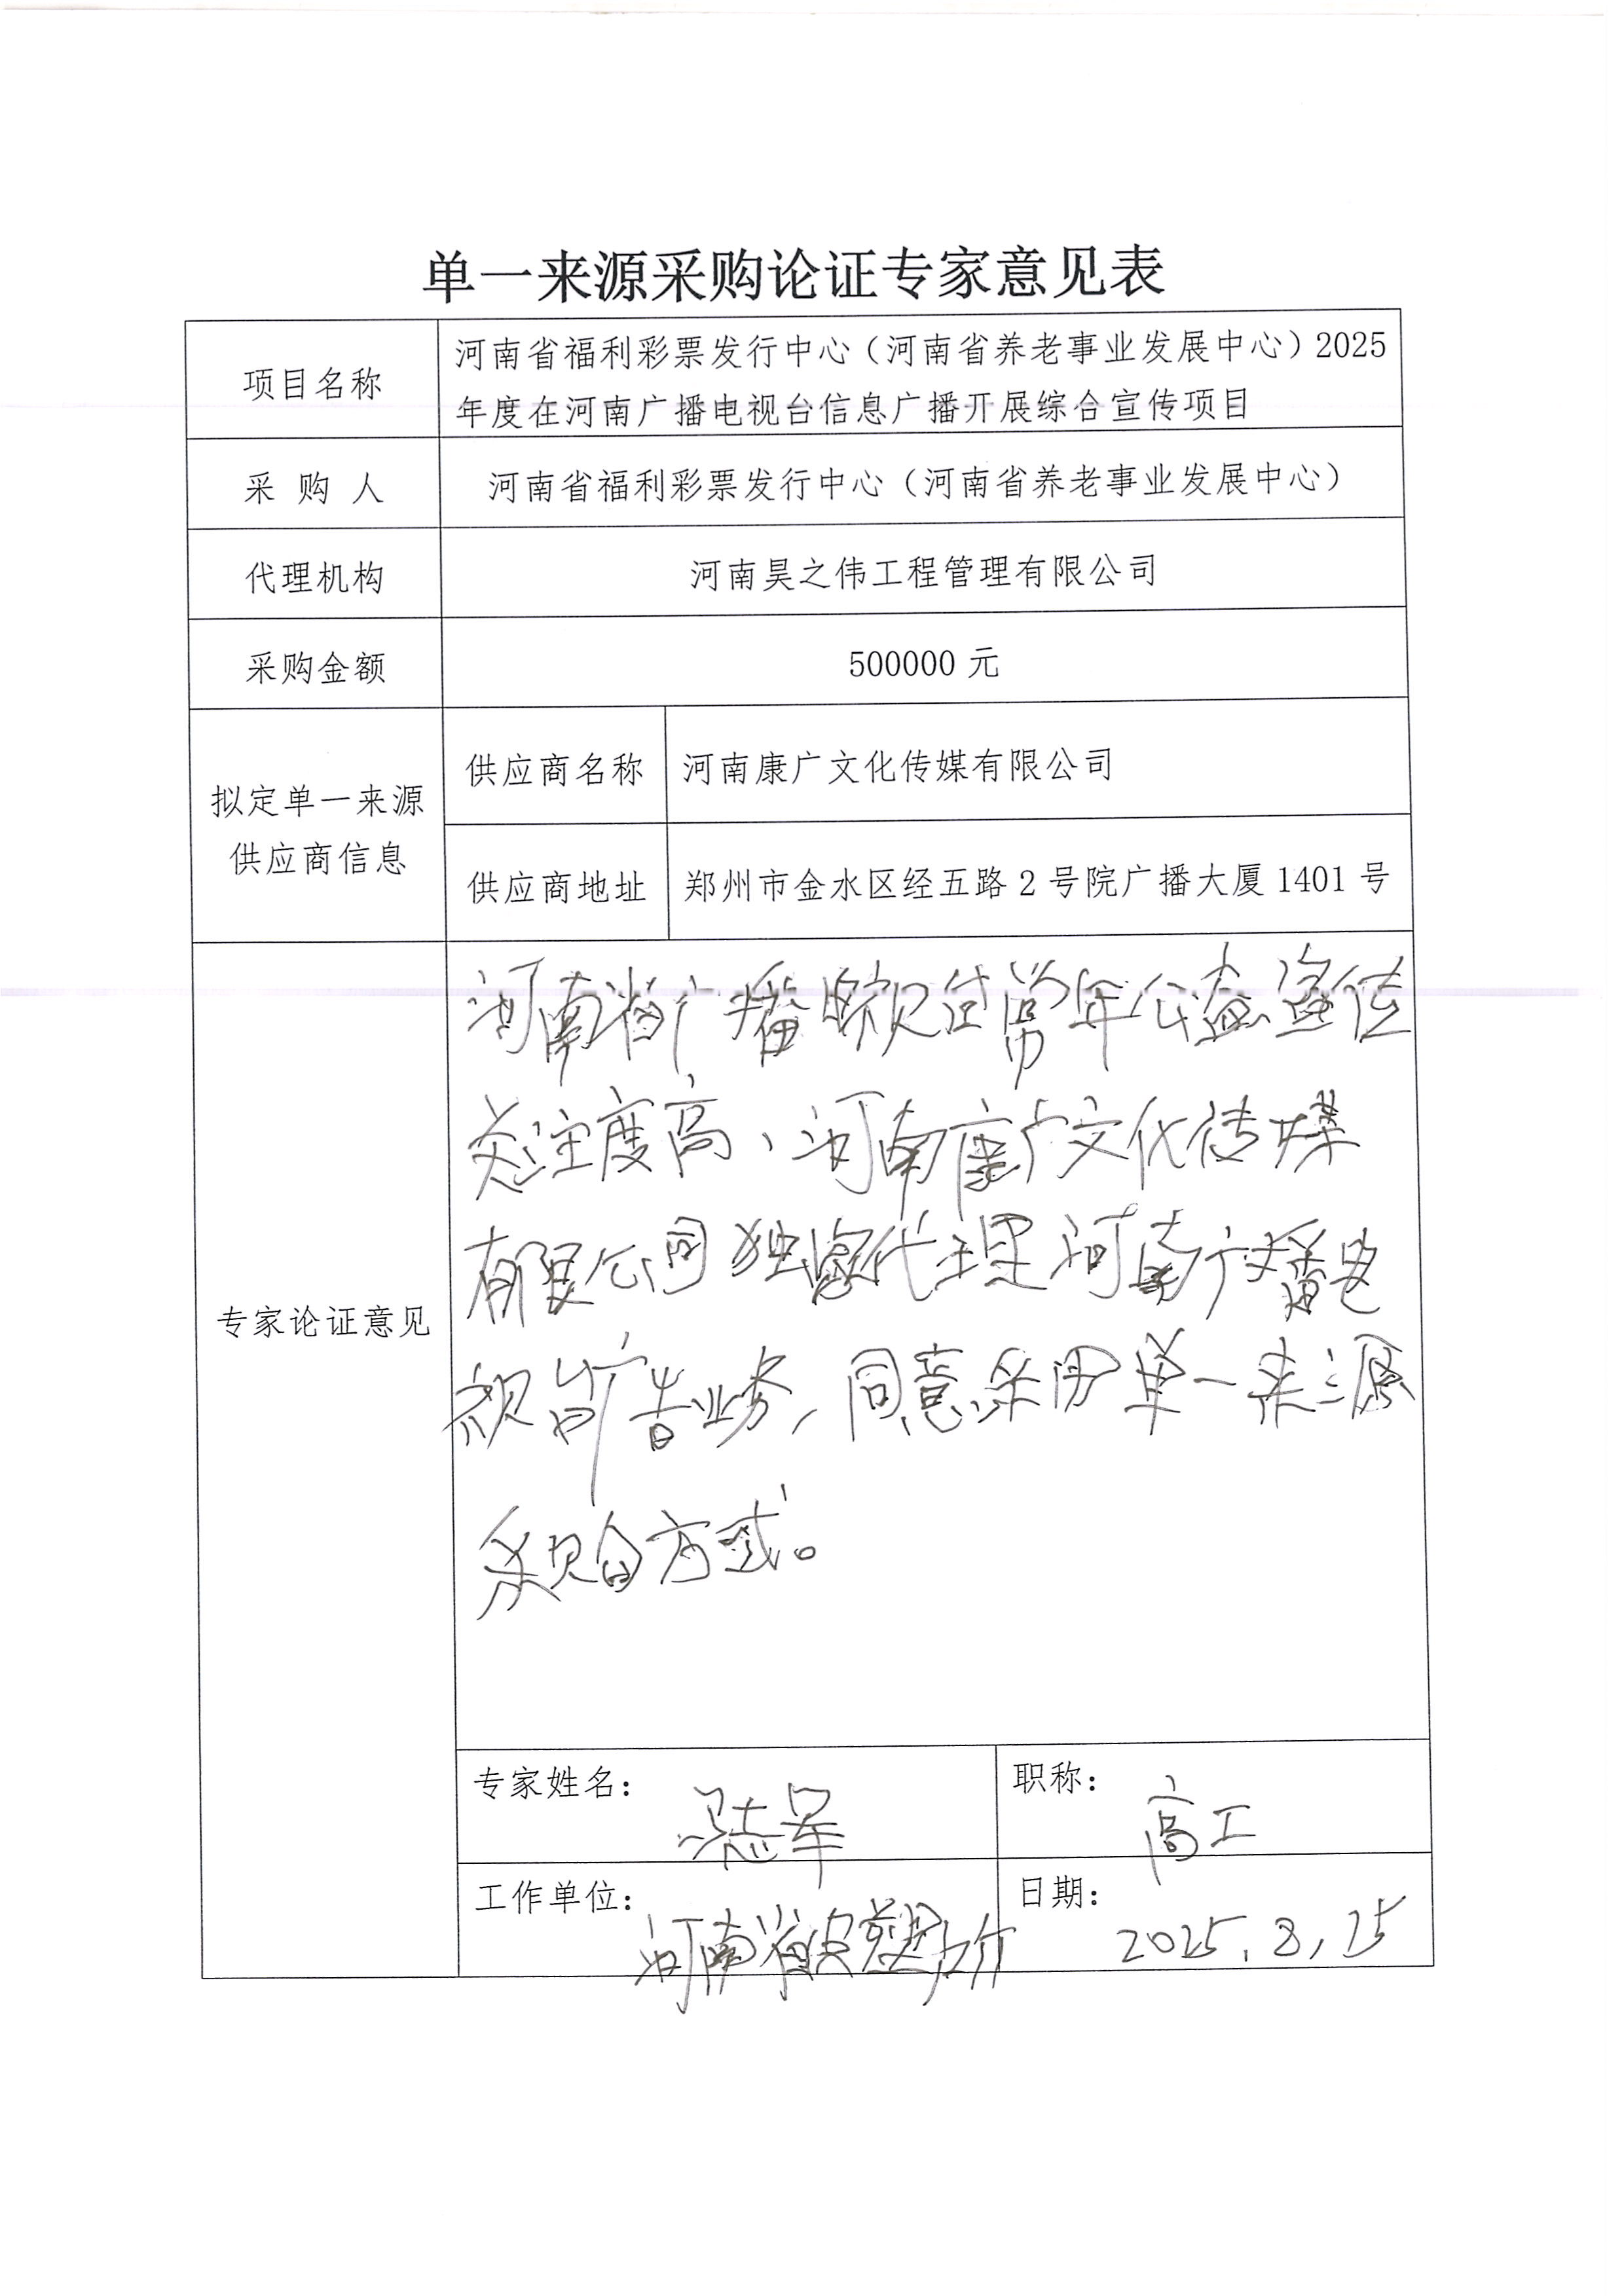 单一来源采购论证专家意见表
项目名称
河南省福利彩票发行中心（河南省养老事业发展中心）2025
年度在河南广播电视台信息广播开展综合宣传项目
采 购 人
河南省福利彩票发行中心（河南省养老事业发展中心）
代理机构
河南昊之伟工程管理有限公司
采购金额
500000 元
拟定单一来源
供应商信息
供应商名称
河南康广文化传媒有限公司
供应商地址
郑州市金水区经五路 2 号院广播大厦 1401 号
专家论证意见
河南省广播电视台常年公益宣传
关注度高、河南康广文化传媒
有限公司独家代理河南广播电
视台广告业务，同意采用单一来源
采购方式。
专家姓名：
冯志军
职称：
高工
工作单位：
河南省
日期：
2025.8.25